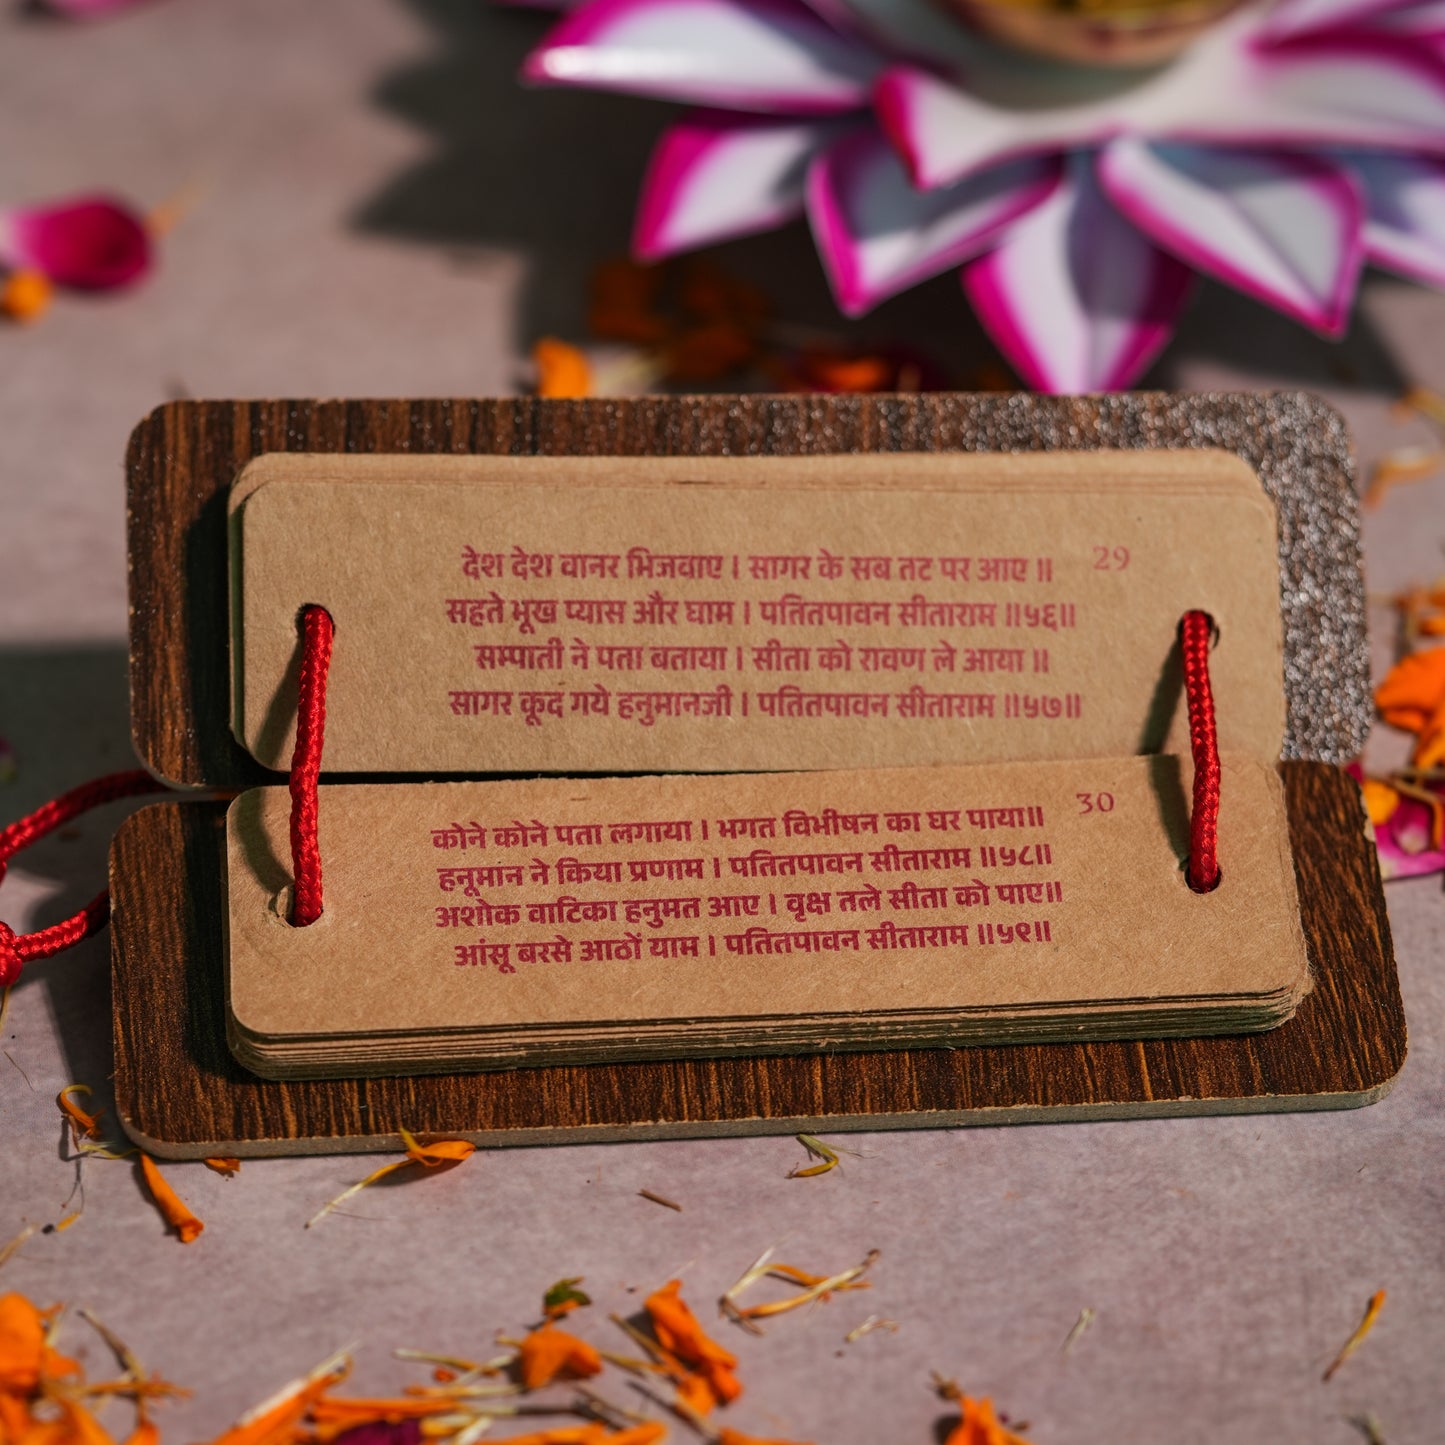 देश देश वानर भिजवाए । सागर के सब तट पर आए ॥ 29
सहते भूख प्यास और घाम । पतितपावन सीताराम ॥५६॥
सम्पाती ने पता बताया । सीता को रावण ले आया ॥
सागर कूद गये हनुमानजी । पतितपावन सीताराम ॥५७॥
कोने कोने पता लगाया । भगत विभीषन का घर पाया॥ 30
हनूमान ने किया प्रणाम । पतितपावन सीताराम ॥५८॥
अशोक वाटिका हनुमत आए । वृक्ष तले सीता को पाए॥
आंसू बरसे आठों याम । पतितपावन सीताराम ॥५९॥